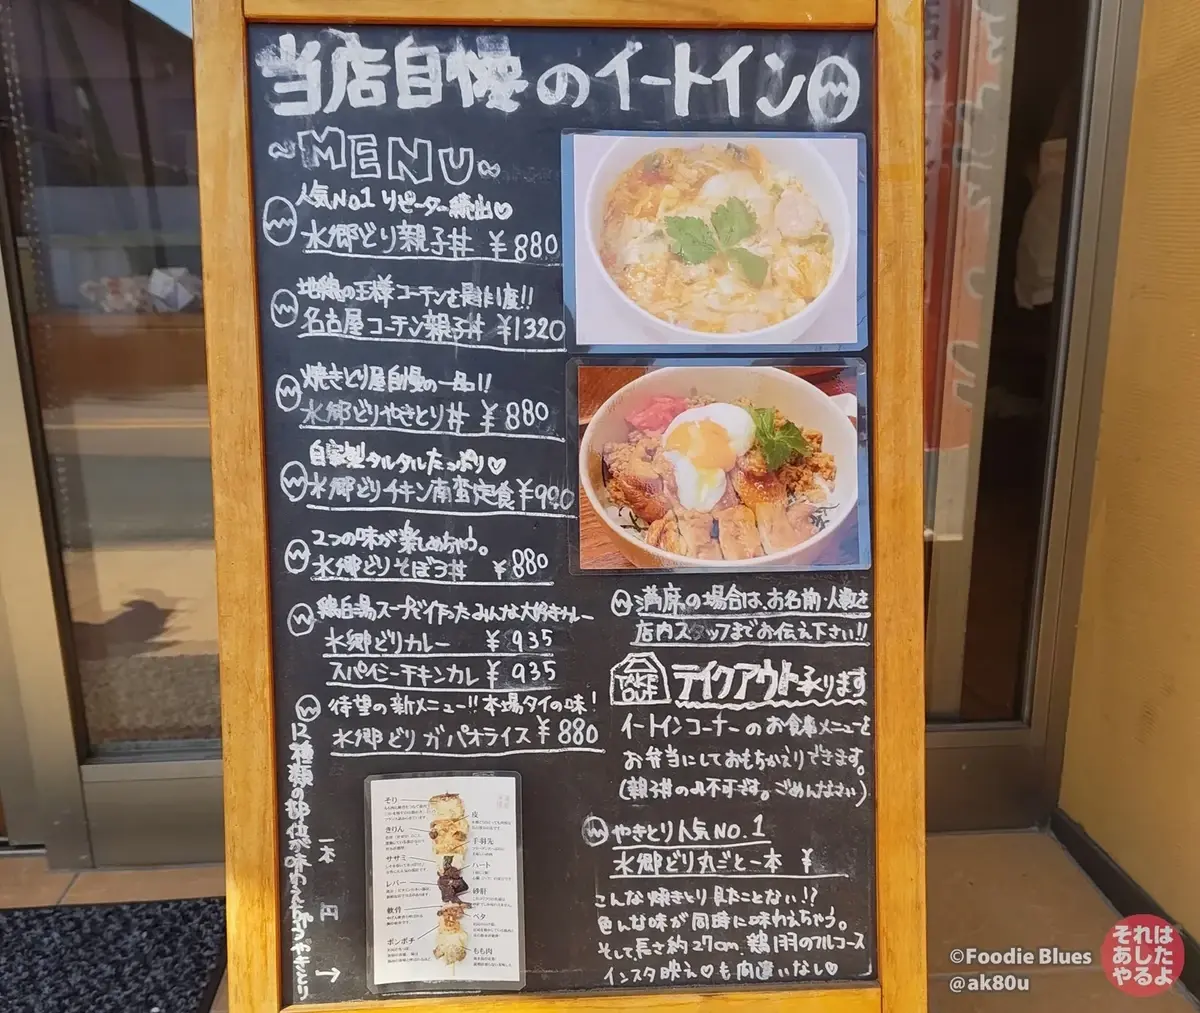 当店自慢のイートイン
～MENU～
人気No.1 リピーター続出♡
水郷どり親子丼 ¥880
地鶏の王様コーチンを是非1度!!
名古屋コーチン親子丼 ¥1320
焼きとり屋自慢の一品!!
水郷どりやきとり丼 ¥880
自家製タルタルたっぷり♡
水郷どりチキン南蛮定食 ¥990
2つの味が楽しめちゃう。
水郷どりそぼろ丼 ¥880
鶏白湯スープで作ったみんな大好きカレー
水郷どりカレー ¥935
スパイシーチキンカレー ¥935
待望の新メニュー!!本場タイの味!
水郷どりガパオライス ¥880
12種類の部位が味わえちゃうやきとり→
一本 円
そり
きりん
ササミ
レバー
軟骨
ボンボチ
皮
手羽元
ハート
砂肝
ペタ
もも肉
満席の場合は、お名前・人数を
店内スタッフまでお伝え下さい!!
TAKE OUT
テイクアウト承ります
イートインコーナーのお食事メニューを
お弁当にしておもちかえりできます。
(親子丼のみ不可です。ごめんなさい)
やきとり人気NO.1
水郷どり丸ごと一本 ¥
こんな焼きとり見たことない!?
色んな味が同時に味わえちゃう。
そして長さ約27cm. 鶏1羽のフルコース
インスタ映え♡も間違いなし♡
©Foodie Blues
@ak80u
それは
あした
やるよ